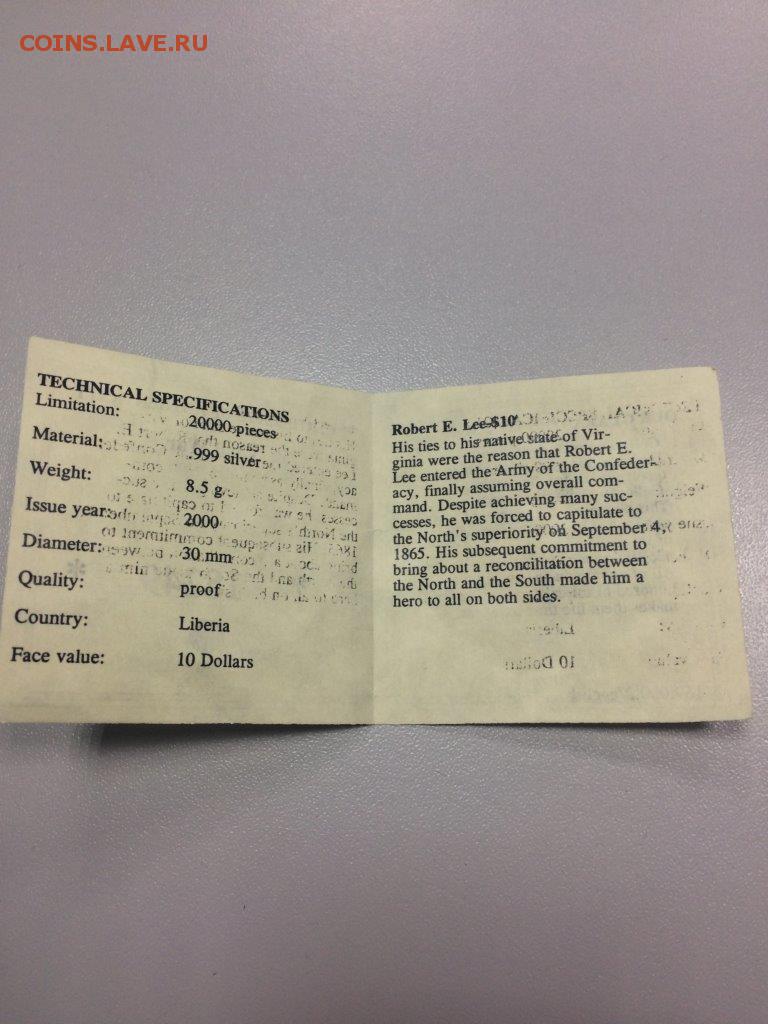 COINS.LAVE.RU
TECHNICAL SPECIFICATIONS
Limitation: 20000 pieces
Material: .999 silver
Weight: 8.5 g
Issue year: 2000
Diameter: 30 mm
Quality: proof
Country: Liberia
Face value: 10 Dollars
Robert E. Lee-$10
His ties to his native state of Vir-
ginia were the reason that Robert E.
Lee entered the Army of the Confeder-
acy, finally assuming overall com-
mand. Despite achieving many suc-
cesses, he was forced to capitulate to
the North's superiority on September 4,
1865. His subsequent commitment to
bring about a reconcilitation between
the North and the South made him a
hero to all on both sides.